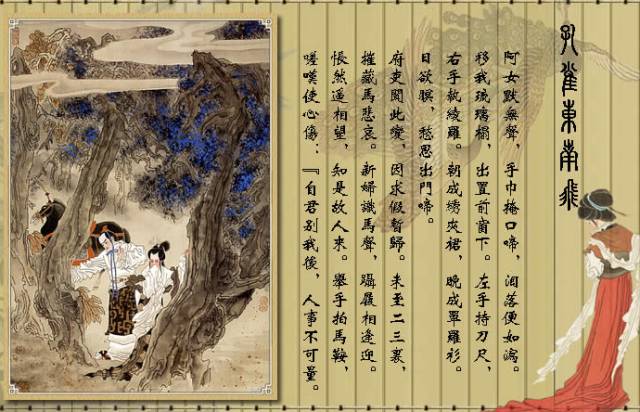 孔雀東南飛
阿女默無聲，手巾掩口啼，淚落便如瀉。
移我琉璃榻，出置前窗下。左手持刀尺，
右手執綾羅。朝成繡夾裙，晚成單羅衫。
日欲暝，愁思出門啼。
府吏聞此變，因求假暫歸。未至二三里，
摧藏馬悲哀。新婦識馬聲，躡履相逢迎。
悵然遙相望，知是故人來。舉手拍馬鞍，
嗟嘆使心傷：『自君別我後，人事不可量。